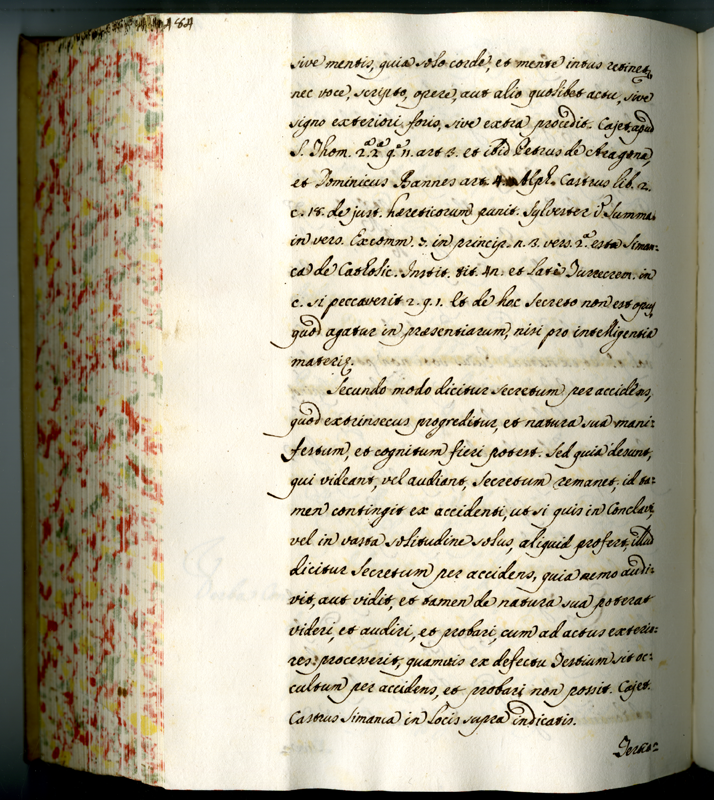 484
sive mentis, quia solo corde, et mente intus retinet,
nec voce, scripto, opere, aut alio quolibet actu, sive
signo exteriori foris, sive extra procedit. Cajet. apud
S. Thom. 2.ª 2.ª q.ª 11. art 3. et ibid Petrus de Aragona,
et Dominicus Bannes art. 4. Alph. Castrus lib. 2.
c. 18. de just. haereticorum punit. Sylvester in Summa
in vers. Excomm. 7. in princip. n. 3. vers. 2.ª est a Siman-
ca de Catholic. Instit. tit. 42. et latè Turrecrem. in
c. si peccaverit 2. q. 1. Et de hoc Secreto non est opus,
quod agatur in praesentiarum, nisi pro intelligentia
materię.
Secundo modo dicitur Secretum per accidens,
quod extrinsecus progreditur, et natura sua mani-
festum, et cognitum fieri potest. Sed quia desunt,
qui videant, vel audiant, Secretum remanet, id ta-
men contingit ex accidenti, ut si quis in Conclavi,
vel in vasta solitudine solus, aliquid profert, illud
dicitur Secretum per accidens, quia nemo audi-
vit, aut vidit, et tamen de natura sua poterat
videri, et audiri, et probari, cum ad actus exterio-
res processerit, quamvis ex defectu Testium sit oc-
cultum per accidens, et probari non possit. Cajet.
Castrus Simanca in Locis supra indicatis.
Tertio